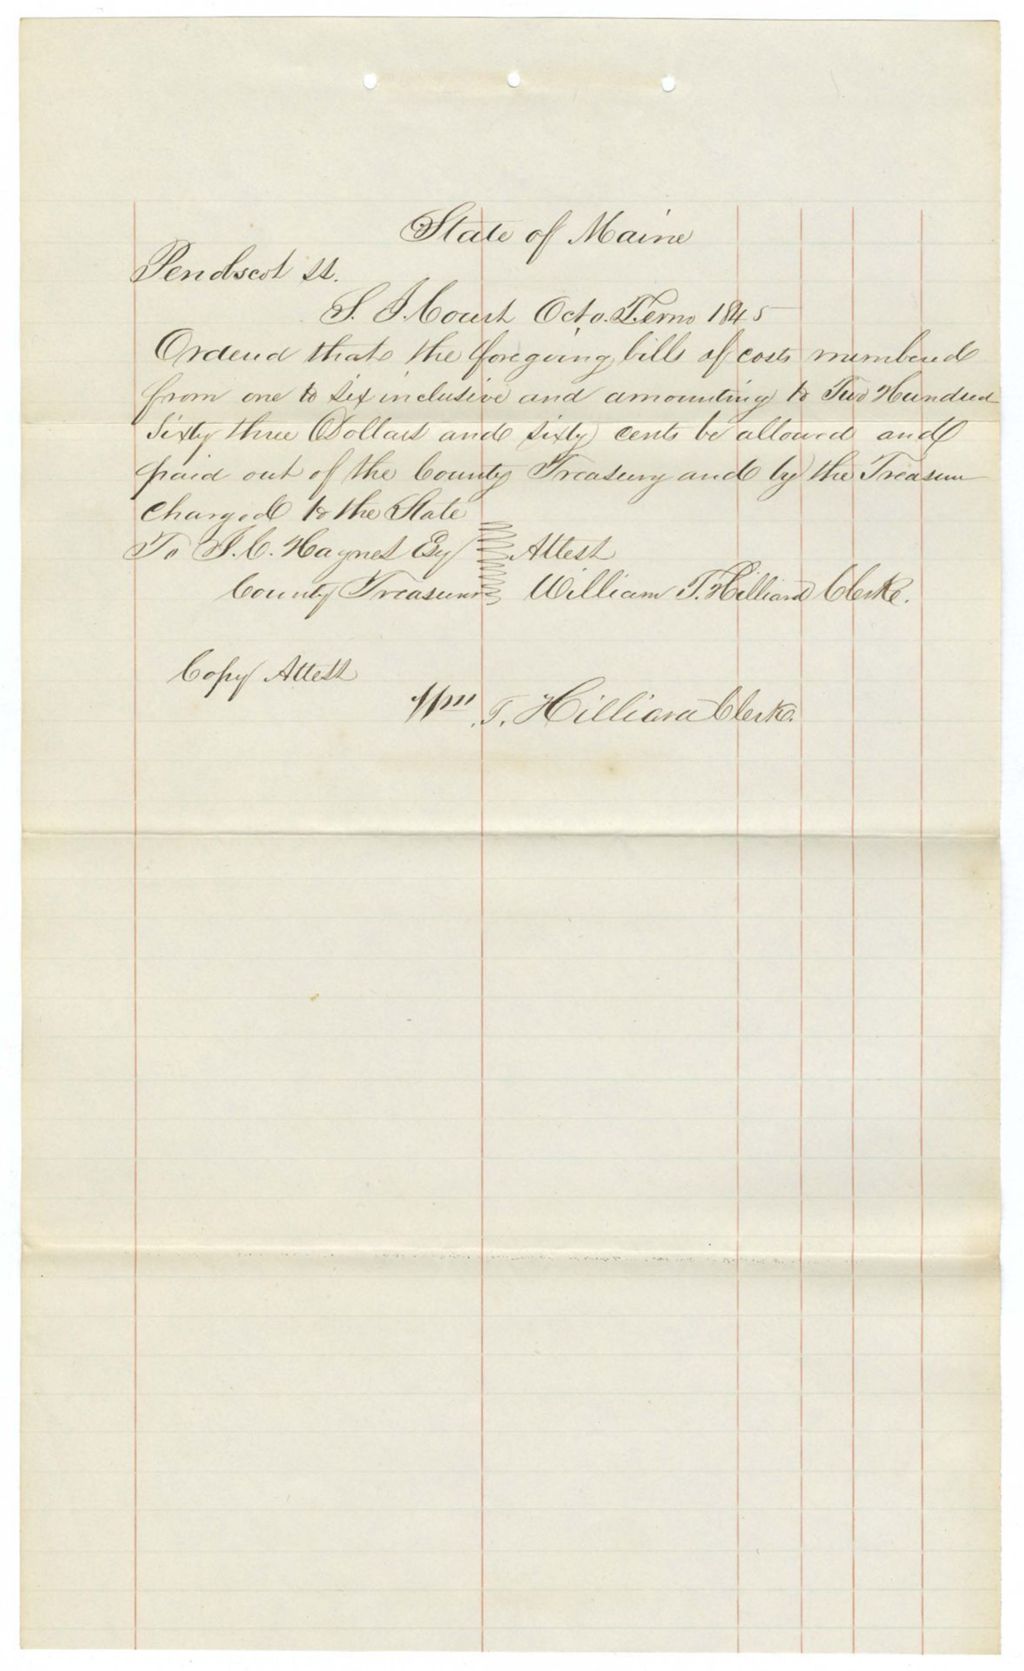 State of Maine
Penobscot ss.
S. J. Court Octo. Term 1845
Ordered that the foregoing bills of costs numbered
from one to six inclusive and amounting to Two Hundred
Sixty three Dollars and sixty cents be allowed and
paid out of the County Treasury and by the Treasurer
charged to the State
To J. C. Haynes Esq Attest
County Treasurer William T. Hilliard Clerk.
Copy Attest
Wm T. Hilliard Clerk.